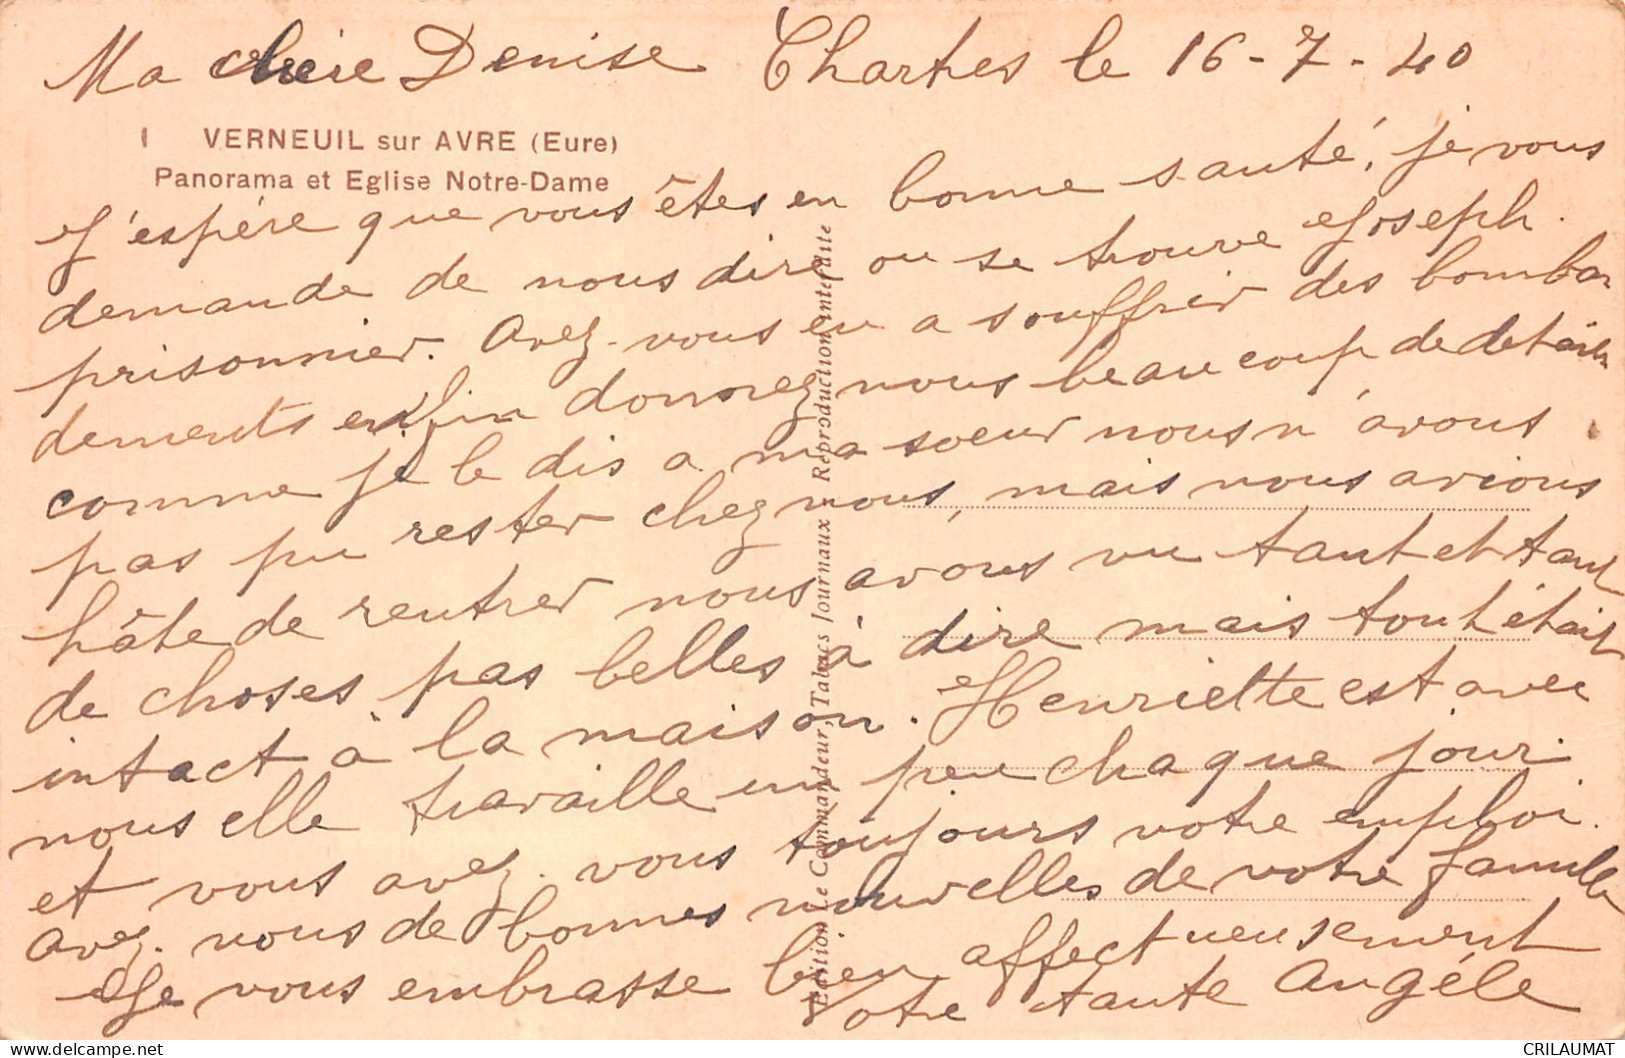 Ma chère Denise Chartres le 16-7-40
1 VERNEUIL sur AVRE (Eure)
Panorama et Eglise Notre-Dame
J'espére que vous êtes en bonne santé, je vous
demande de nous dire ou se trouve Joseph.
prisonnier. Avez-vous eu a souffrir des bombar
dements enfin donnez nous beaucoup de détails
comme je le dis a ma soeur nous n'avons
pas pu rester chez nous, mais nous avions
hâte de rentrer nous avons vu tant et tant
de choses pas belles à dire mais tout était
intact à la maison. Henriette est avec
nous elle travaille un peu chaque jour.
et vous avez-vous toujours votre emploi.
avez-vous de bonnes nouvelles de votre famille
Je vous embrasse bien affectueusement
Votre tante Angéle
Edition Le Commandeur, Tabacs Journaux - Reproduction interdite
CRILAUMAT